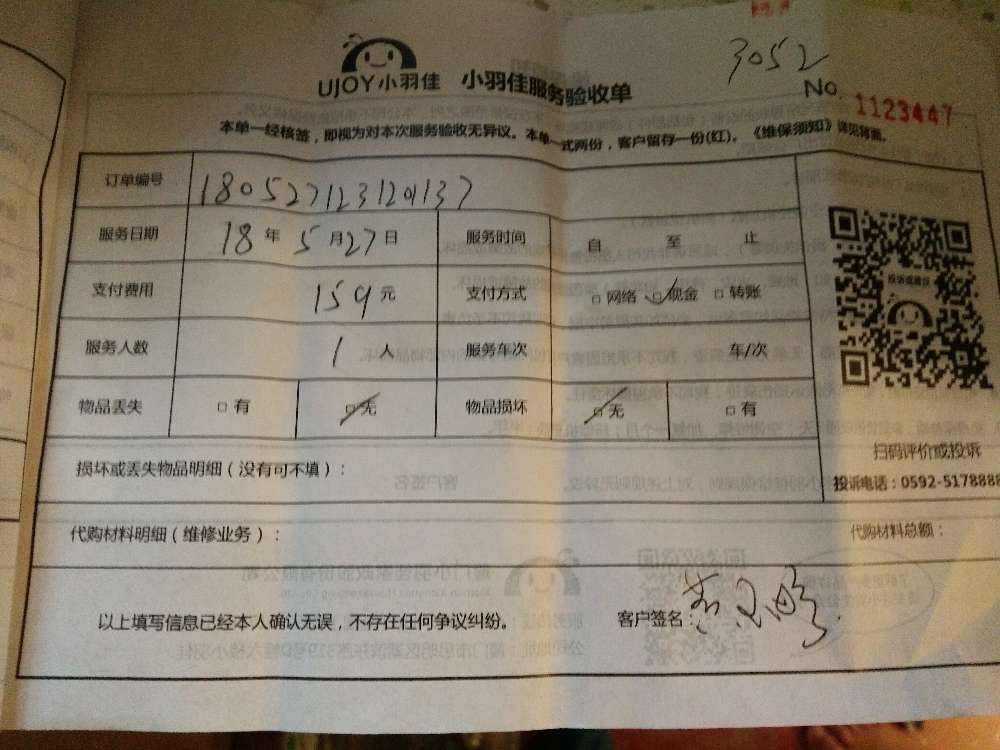 3052
UJOY小羽佳 小羽佳服务验收单
No. 1123447
本单一经核签，即视为对本次服务验收无异议。本单一式两份，客户留存一份(红)。《维保须知》详见背面。
订单编号 180527123129137
服务日期 18 年 5 月 27 日 服务时间 自 至 止
支付费用 159 元 支付方式 □网络 □现金 □转账
服务人数 1 人 服务车次 车/次
物品丢失 □有 □无 物品损坏 □无 □有
投诉或建议
扫码评价或投诉
投诉电话：0592-5178888
损坏或丢失物品明细（没有可不填）：
代购材料明细（维修业务）： 代购材料总额：
以上填写信息已经本人确认无误，不存在任何争议纠纷。 客户签名：